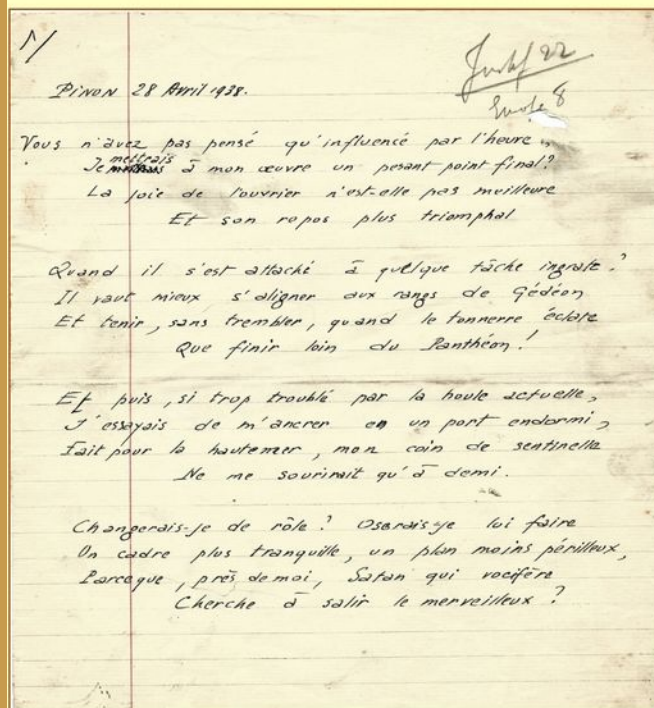 1/
Pinon 28 Avril 1938.
Vous n'avez pas pensé qu'influencé par l'heure,
Je mettrais à mon œuvre un pesant point final?
La joie de l'ouvrier n'est-elle pas meilleure
Et son repos plus triomphal
Quand il s'est attaché à quelque tâche ingrate?
Il vaut mieux s'aligner aux rangs de Gédéon
Et tenir, sans trembler, quand le tonnerre éclate
Que finir loin du Panthéon!
Et puis, si trop troublé par la houle actuelle,
J'essayais de m'ancrer en un port endormi,
Fait pour la hautemer, mon coin de sentinelle
Ne me sourirait qu'à demi.
Changerais-je de rôle? Oserais-je lui faire
Un cadre plus tranquille, un plan moins périlleux,
Parceque, près de moi, Satan qui vocifère
Cherche à salir le merveilleux?